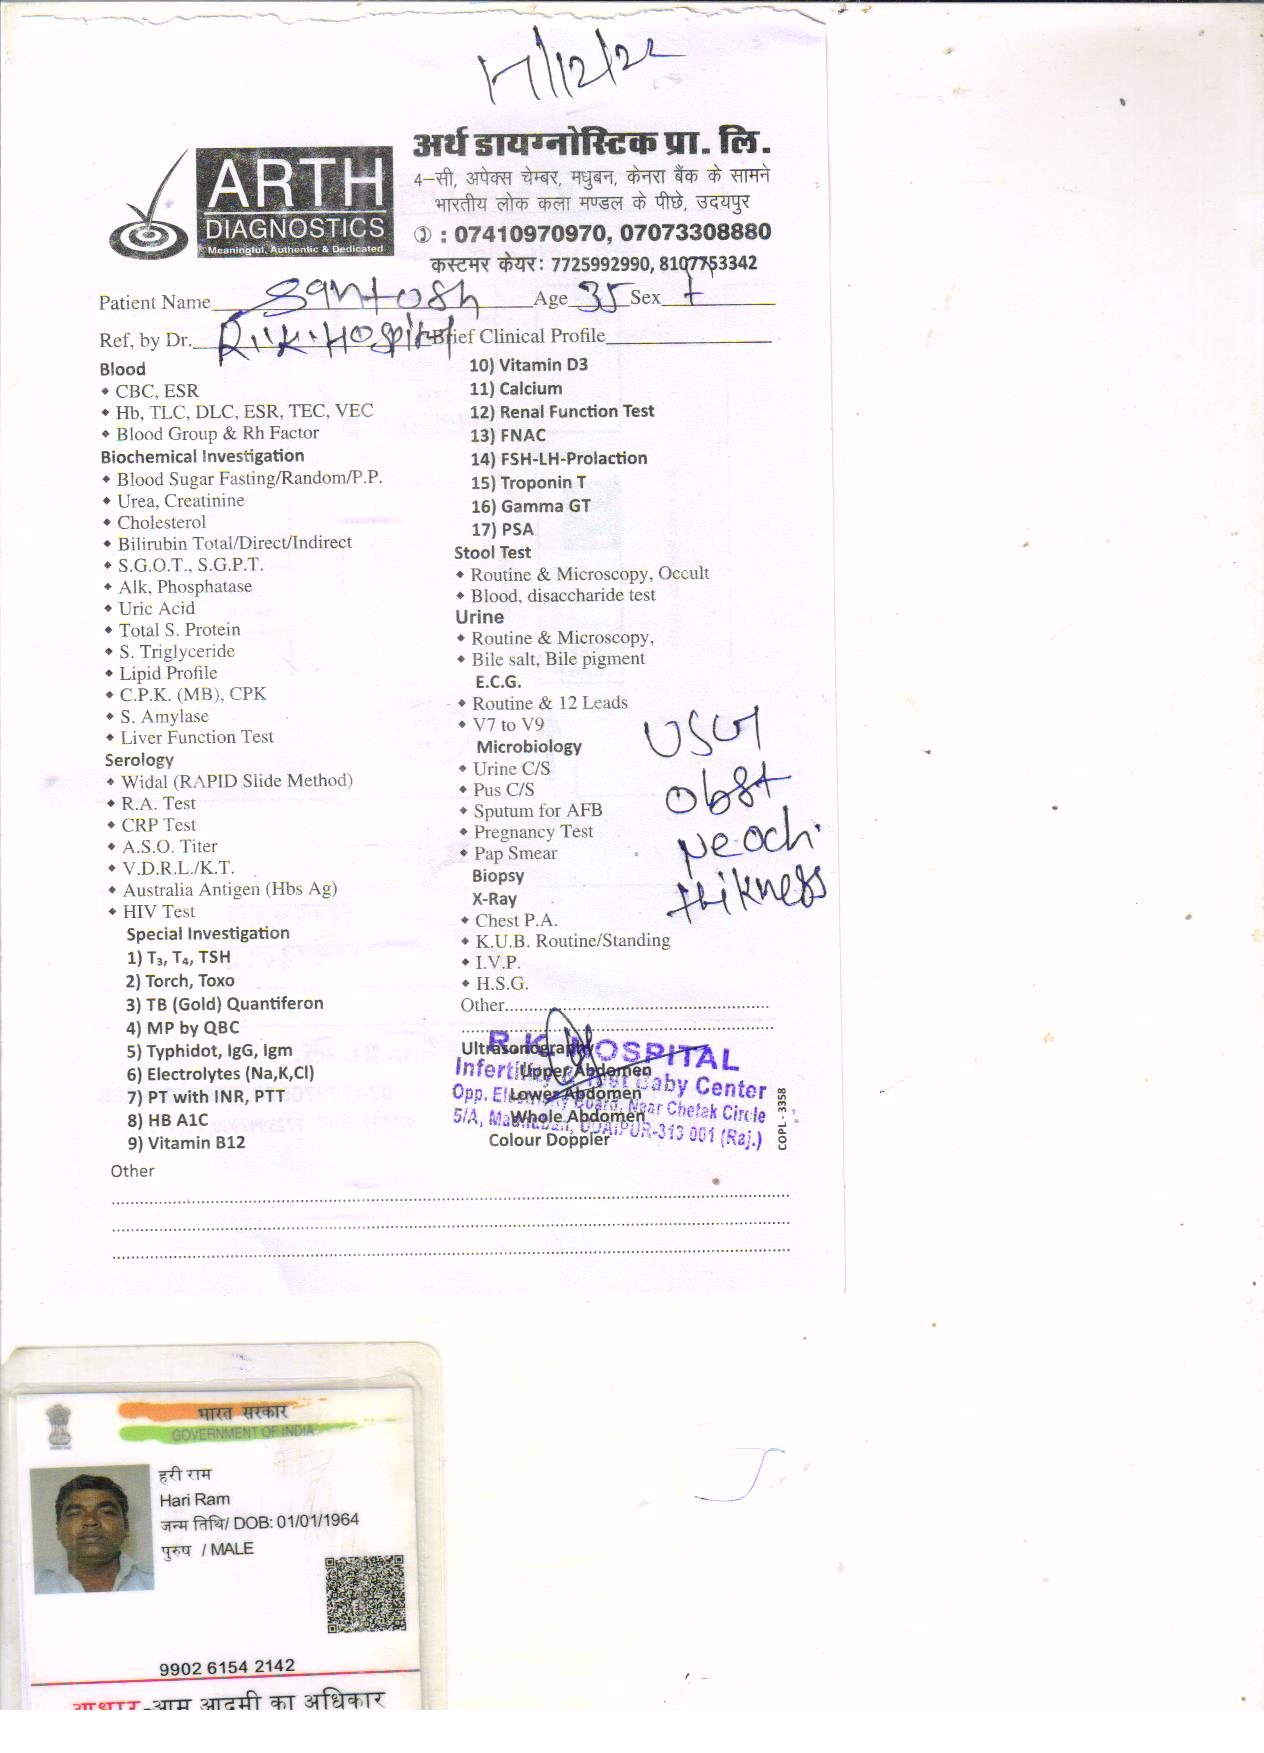 17/12/22
अर्थ डायग्नोस्टिक प्रा. लि.
ARTH
DIAGNOSTICS
Meaningful, Authentic & Dedicated
4-सी, अपेक्स चेम्बर, मधुबन, केनरा बैंक के सामने
भारतीय लोक कला मण्डल के पीछे, उदयपुर
: 07410970970, 07073308880
कस्टमर केयर: 7725992990, 8107753342
Patient Name Santosh Age 35 Sex F
Ref, by Dr. R.K. Hospital Brief Clinical Profile
Blood
CBC, ESR
Hb, TLC, DLC, ESR, TEC, VEC
Blood Group & Rh Factor
Biochemical Investigation
Blood Sugar Fasting/Random/P.P.
Urea, Creatinine
Cholesterol
Bilirubin Total/Direct/Indirect
S.G.O.T., S.G.P.T.
Alk, Phosphatase
Uric Acid
Total S. Protein
S. Triglyceride
Lipid Profile
C.P.K. (MB), CPK
S. Amylase
Liver Function Test
Serology
Widal (RAPID Slide Method)
R.A. Test
CRP Test
A.S.O. Titer
V.D.R.L./K.T.
Australia Antigen (Hbs Ag)
HIV Test
Special Investigation
1) T₃, T₄, TSH
2) Torch, Toxo
3) TB (Gold) Quantiferon
4) MP by QBC
5) Typhidot, IgG, Igm
6) Electrolytes (Na,K,Cl)
7) PT with INR, PTT
8) HB A1C
9) Vitamin B12
10) Vitamin D3
11) Calcium
12) Renal Function Test
13) FNAC
14) FSH-LH-Prolaction
15) Troponin T
16) Gamma GT
17) PSA
Stool Test
Routine & Microscopy, Occult
Blood, disaccharide test
Urine
Routine & Microscopy,
Bile salt, Bile pigment
E.C.G.
Routine & 12 Leads
V7 to V9
Microbiology
Urine C/S
Pus C/S
Sputum for AFB
Pregnancy Test
Pap Smear
Biopsy
X-Ray
Chest P.A.
K.U.B. Routine/Standing
I.V.P.
H.S.G.
Other
USG
obst
thikness
Ultrasonography
Upper Abdomen
Lower Abdomen
Whole Abdomen
Colour Doppler
R.K. HOSPITAL
Infertility & Test Baby Center
Opp. Electricity Board, Near Chetak Circle
5/A, Madhuban, UDAIPUR-313 001 (Raj.)
COPL-3358
Other
भारत सरकार
GOVERNMENT OF INDIA
हरी राम
Hari Ram
जन्म तिथि/ DOB: 01/01/1964
पुरुष / MALE
9902 6154 2142
आधार-आम आदमी का अधिकार